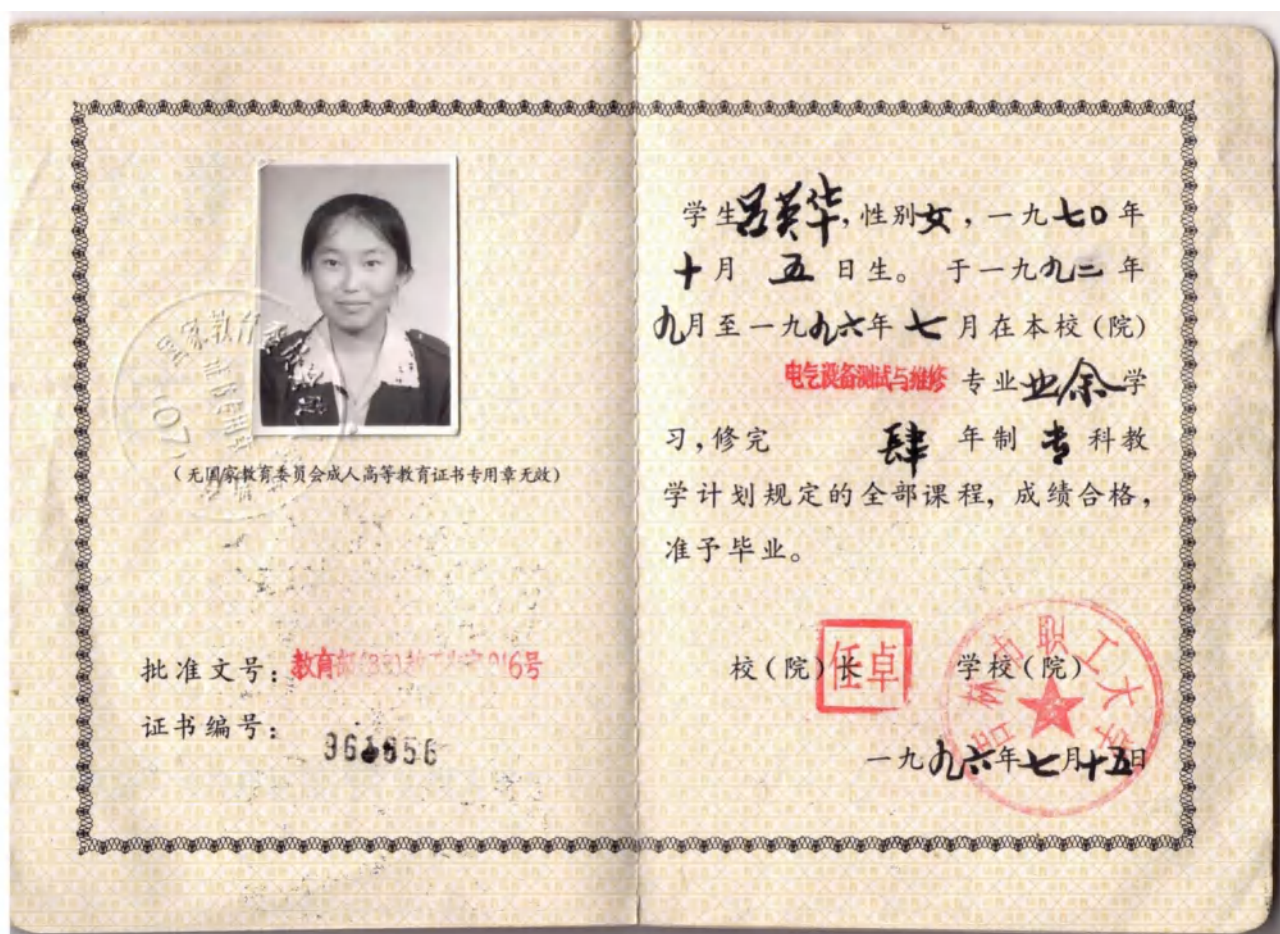 （无国家教育委员会成人高等教育证书专用章无效）
批准文号：教育部(83)教工农字016号
证书编号：
学生吕英华，性别女，一九七0年
十月 五 日生。 于一九九二年
九月至一九九六年 七 月在本校（院）
电气设备测试与维修 专业业余学
习，修完 肆 年制 专 科教
学计划规定的全部课程，成绩合格，
准予毕业。
校（院）长 任卓 学校（院）
吉林市职工大学
一九九六年七月十五日